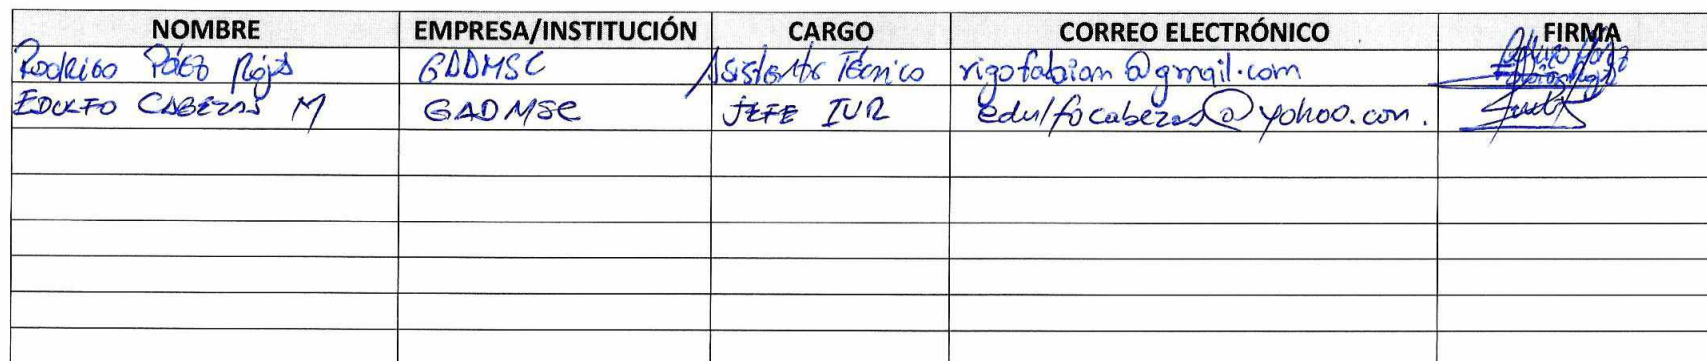 NOMBRE EMPRESA/INSTITUCIÓN CARGO CORREO ELECTRÓNICO FIRMA
Rodrigo Páez Rojas GADMSC Asistente Técnico rigofabian@gmail.com
EDULFO CABEZAS M GADMSC JEFE IUR edulfocabezas@yohoo.com.